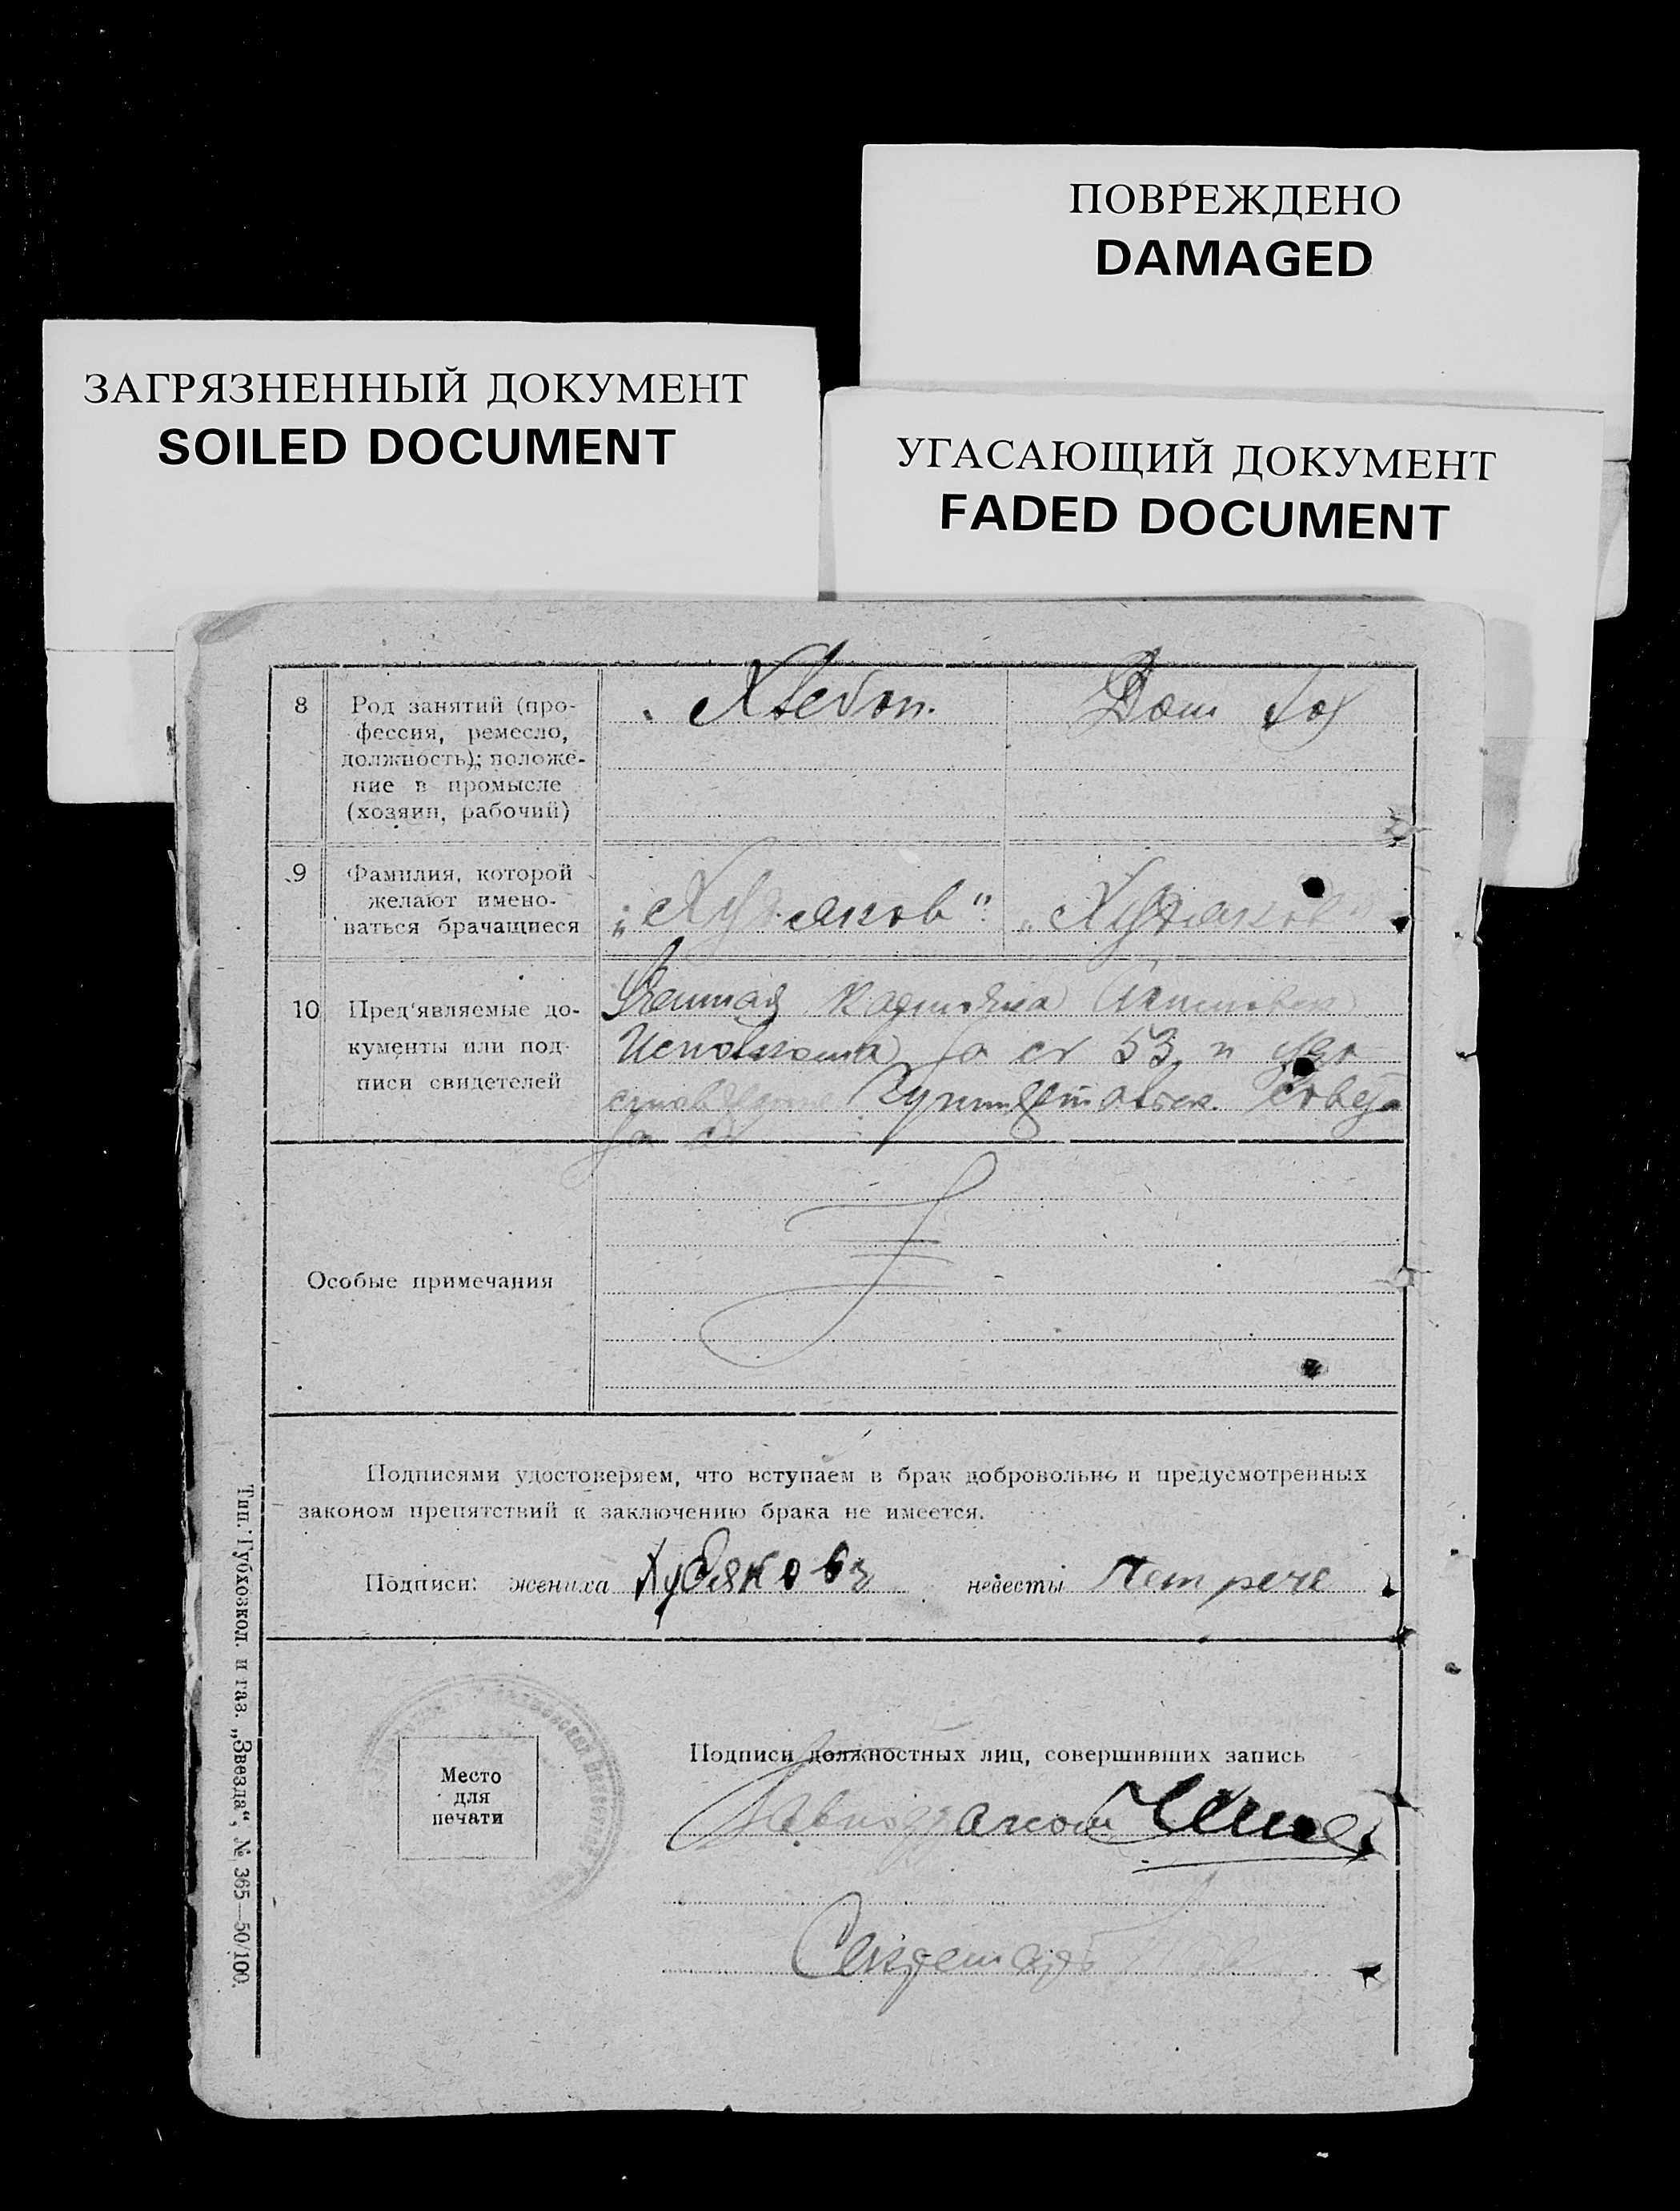 ПОВРЕЖДЕНО
DAMAGED
ЗАГРЯЗНЕННЫЙ ДОКУМЕНТ
SOILED DOCUMENT
УГАСАЮЩИЙ ДОКУМЕНТ
FADED DOCUMENT
8 Род занятий (про-
фессия, ремесло,
должность); положе-
ние в промысле
(хозяин, рабочий)
Хлебоп. Дом хоз
9 Фамилия, которой
желают имено-
ваться брачащиеся
„Худяков" „Худяков"
10 Пред'являемые до-
кументы или под-
писи свидетелей
Учетная карточка
Исполкома за № 53, и удо
стоверение совета
за №
Особые примечания
Подписями удостоверяем, что вступаем в брак добровольно и предусмотренных
законом препятствий к заключению брака не имеется.
Подписи: жениха Худяковъ невесты
Место
для
печати
Подписи должностных лиц, совершивших запись
Секретарь
Тип. Губхозкол. и газ. „Звезда", № 365—50/100.